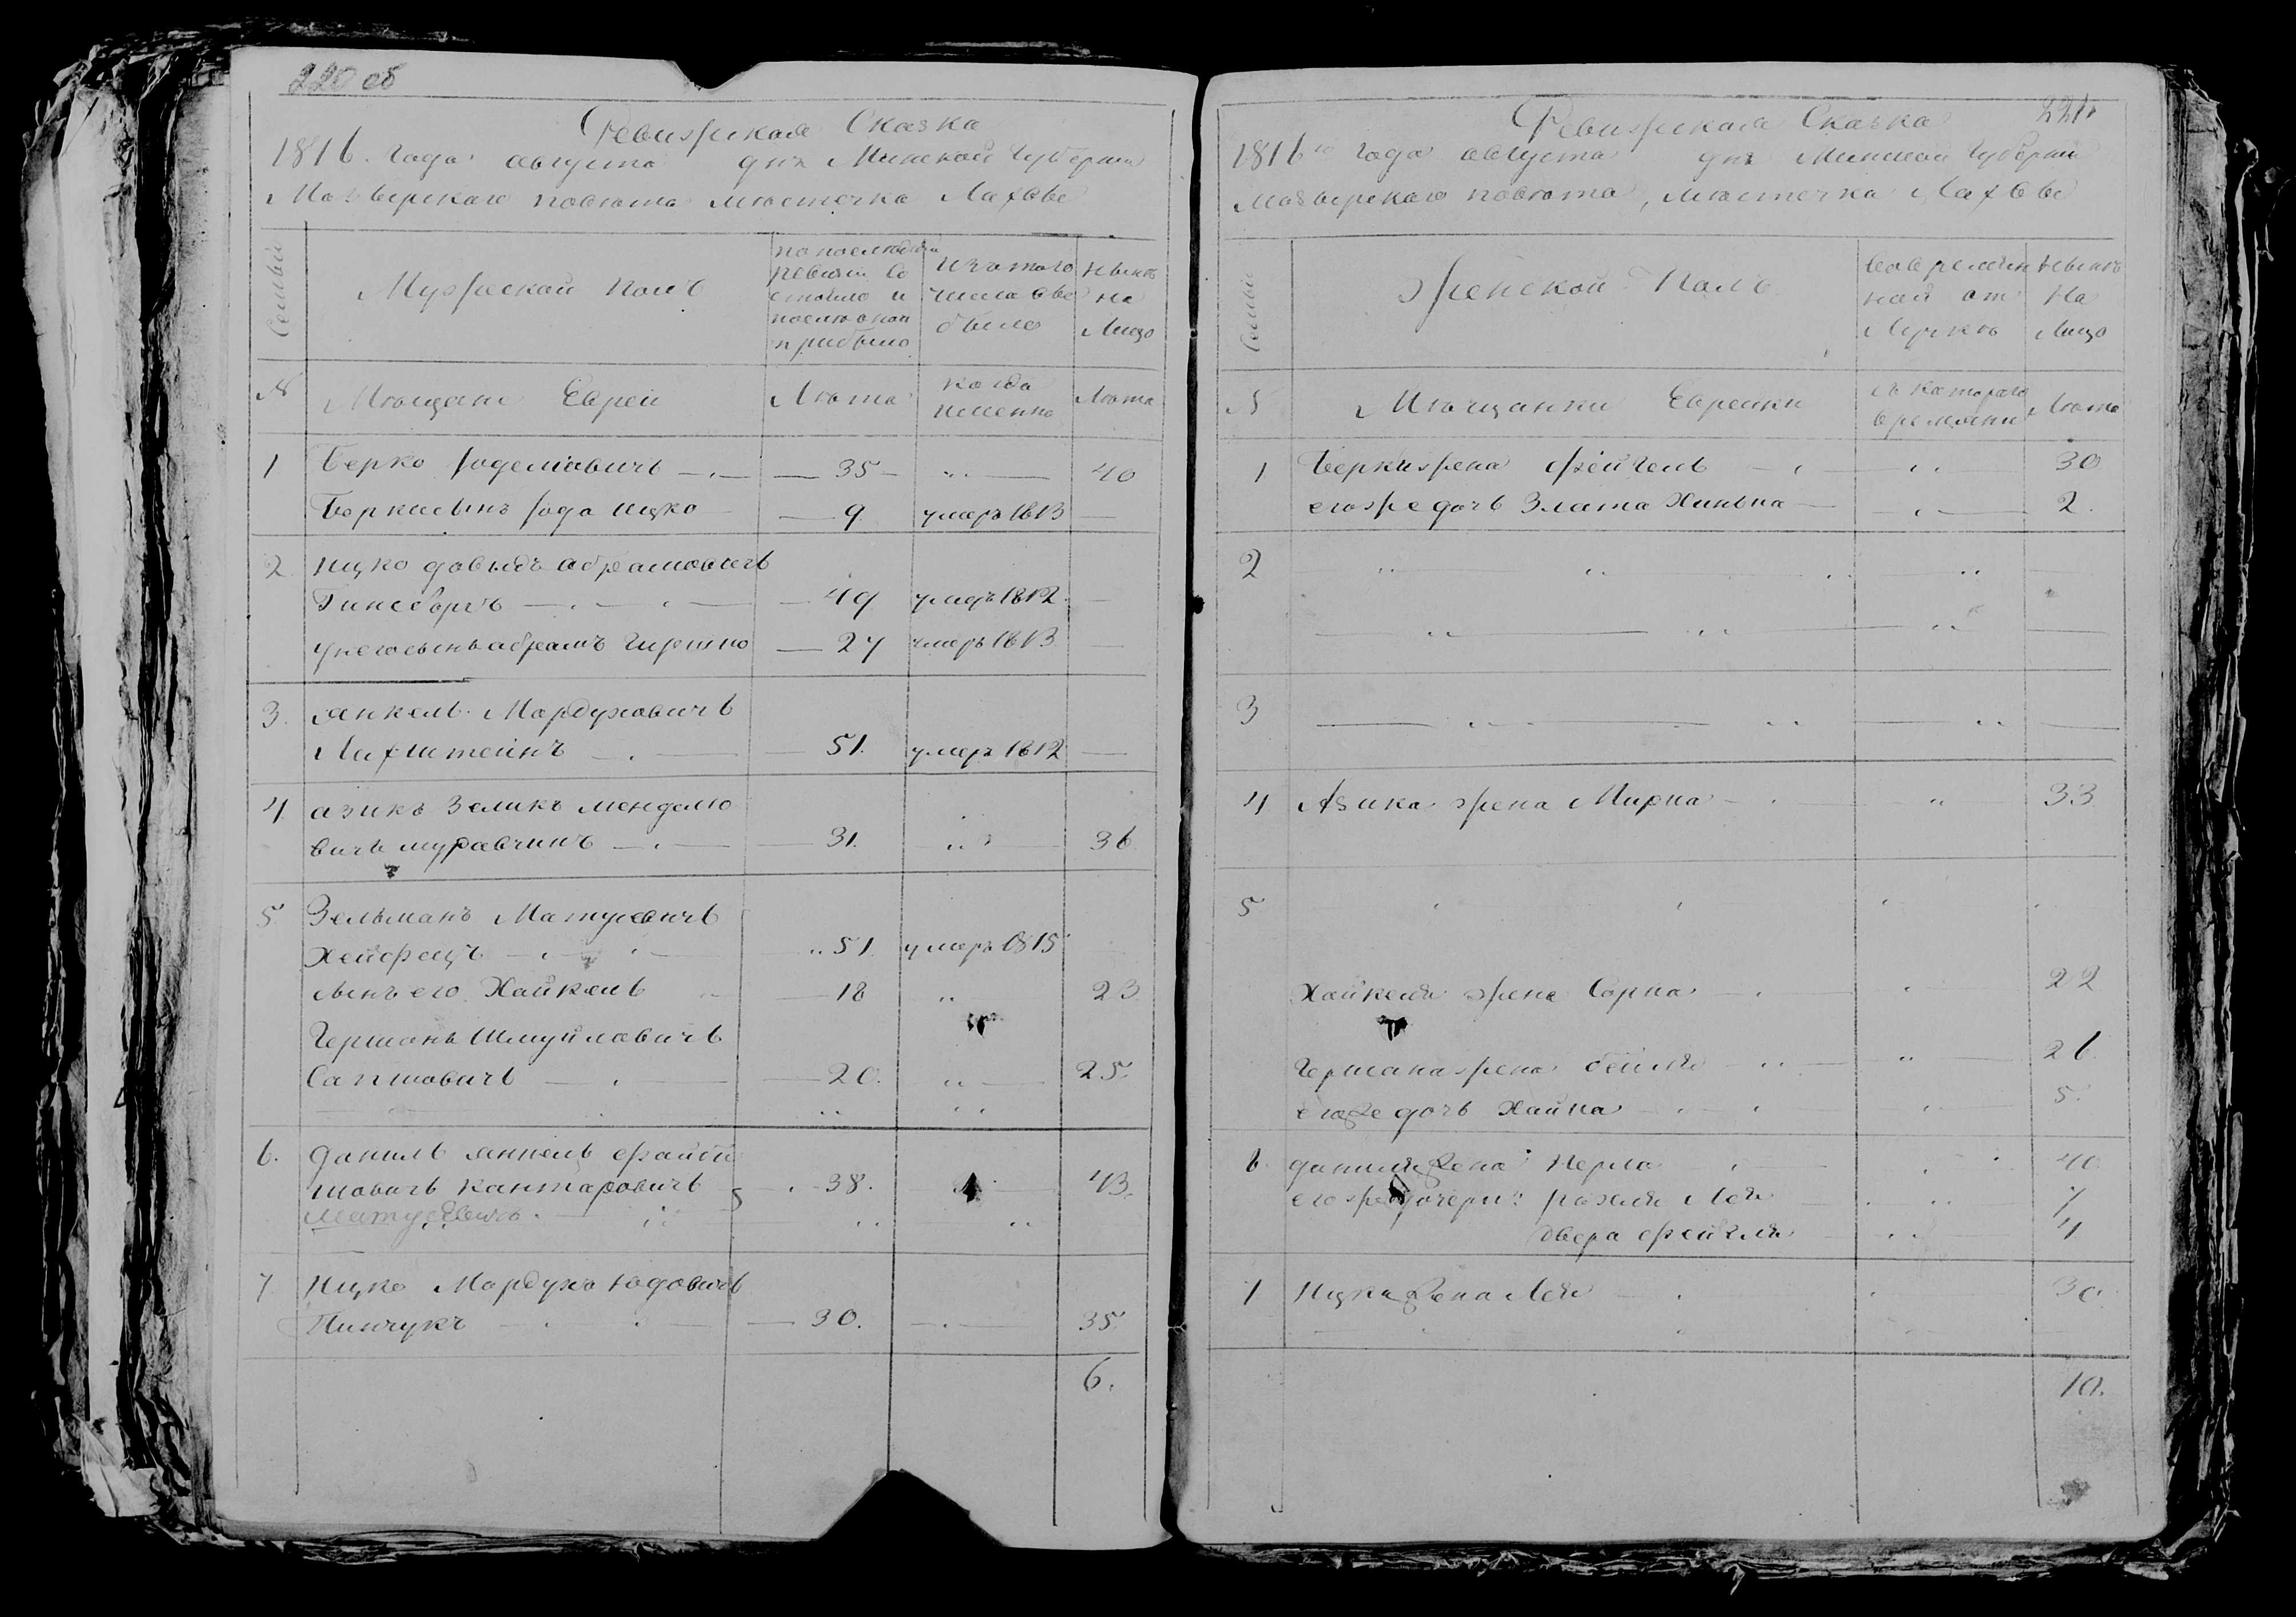 220 об
Ревизская Сказка
1816. Года августа дня Минской Губернии
Мозырскаго повета местечка Лахве
Семьи
Мужеской полъ
по последней
ревизии со
стояло и
после оной
прибыло
изъ того
числа вы
было
ныне
на
лицо
№
Мещане Евреи
Лета
когда
именно
Лета
1 Берко — 35 — 40
Берки сынъ Ицко — 9 умеръ 1813
2. Ицко Давыдъ Абрамовичъ
Гинсборгъ — 49 умеръ 1812.
у него сынъ Абрамъ Гиршко — 27 умеръ 1813
3. Янкель Мордуховичъ
Лахштейнъ — 51. умеръ 1812
4. Азикъ Зеликъ Менделю
вичъ Муравчинъ — 31. 36
5. Зельманъ Матусевичъ
Хейфецъ — 51. умеръ 1815
сынъ его Хайкель 18 23
Гершонъ Шмуйловичъ
20. 25.
6. Данилъ Янкель Файби
шовичъ Кантаровичъ 38. 43.
Матусевичъ
7 Ицко Мордухъ Юдовичъ
Пинчукъ — 30. 35
6.
221.
Ревизская Сказка
1816го Года августа дня Минской Губернии
Мозырскаго повета, местечка Лахве
Семьи
Женской Полъ
во времен
ной от
лучке
ныне
на
лицо
№
Мещанки Еврейки
съ котораго
времени
Лета
1 Берки жена Фейгель 30
его же дочь Злата Хиньна 2.
2
3
4 Азика жена Мирка 33
5
Хайкеля жена Сорка 22
Гершана жена Бейля 26
его же дочь Хайка 5.
6. Данилы жена Перла 40
его же дочери: Рохля Лея 7
Двера Фейгля 4
7 Ицки жена Лея 30.
10.